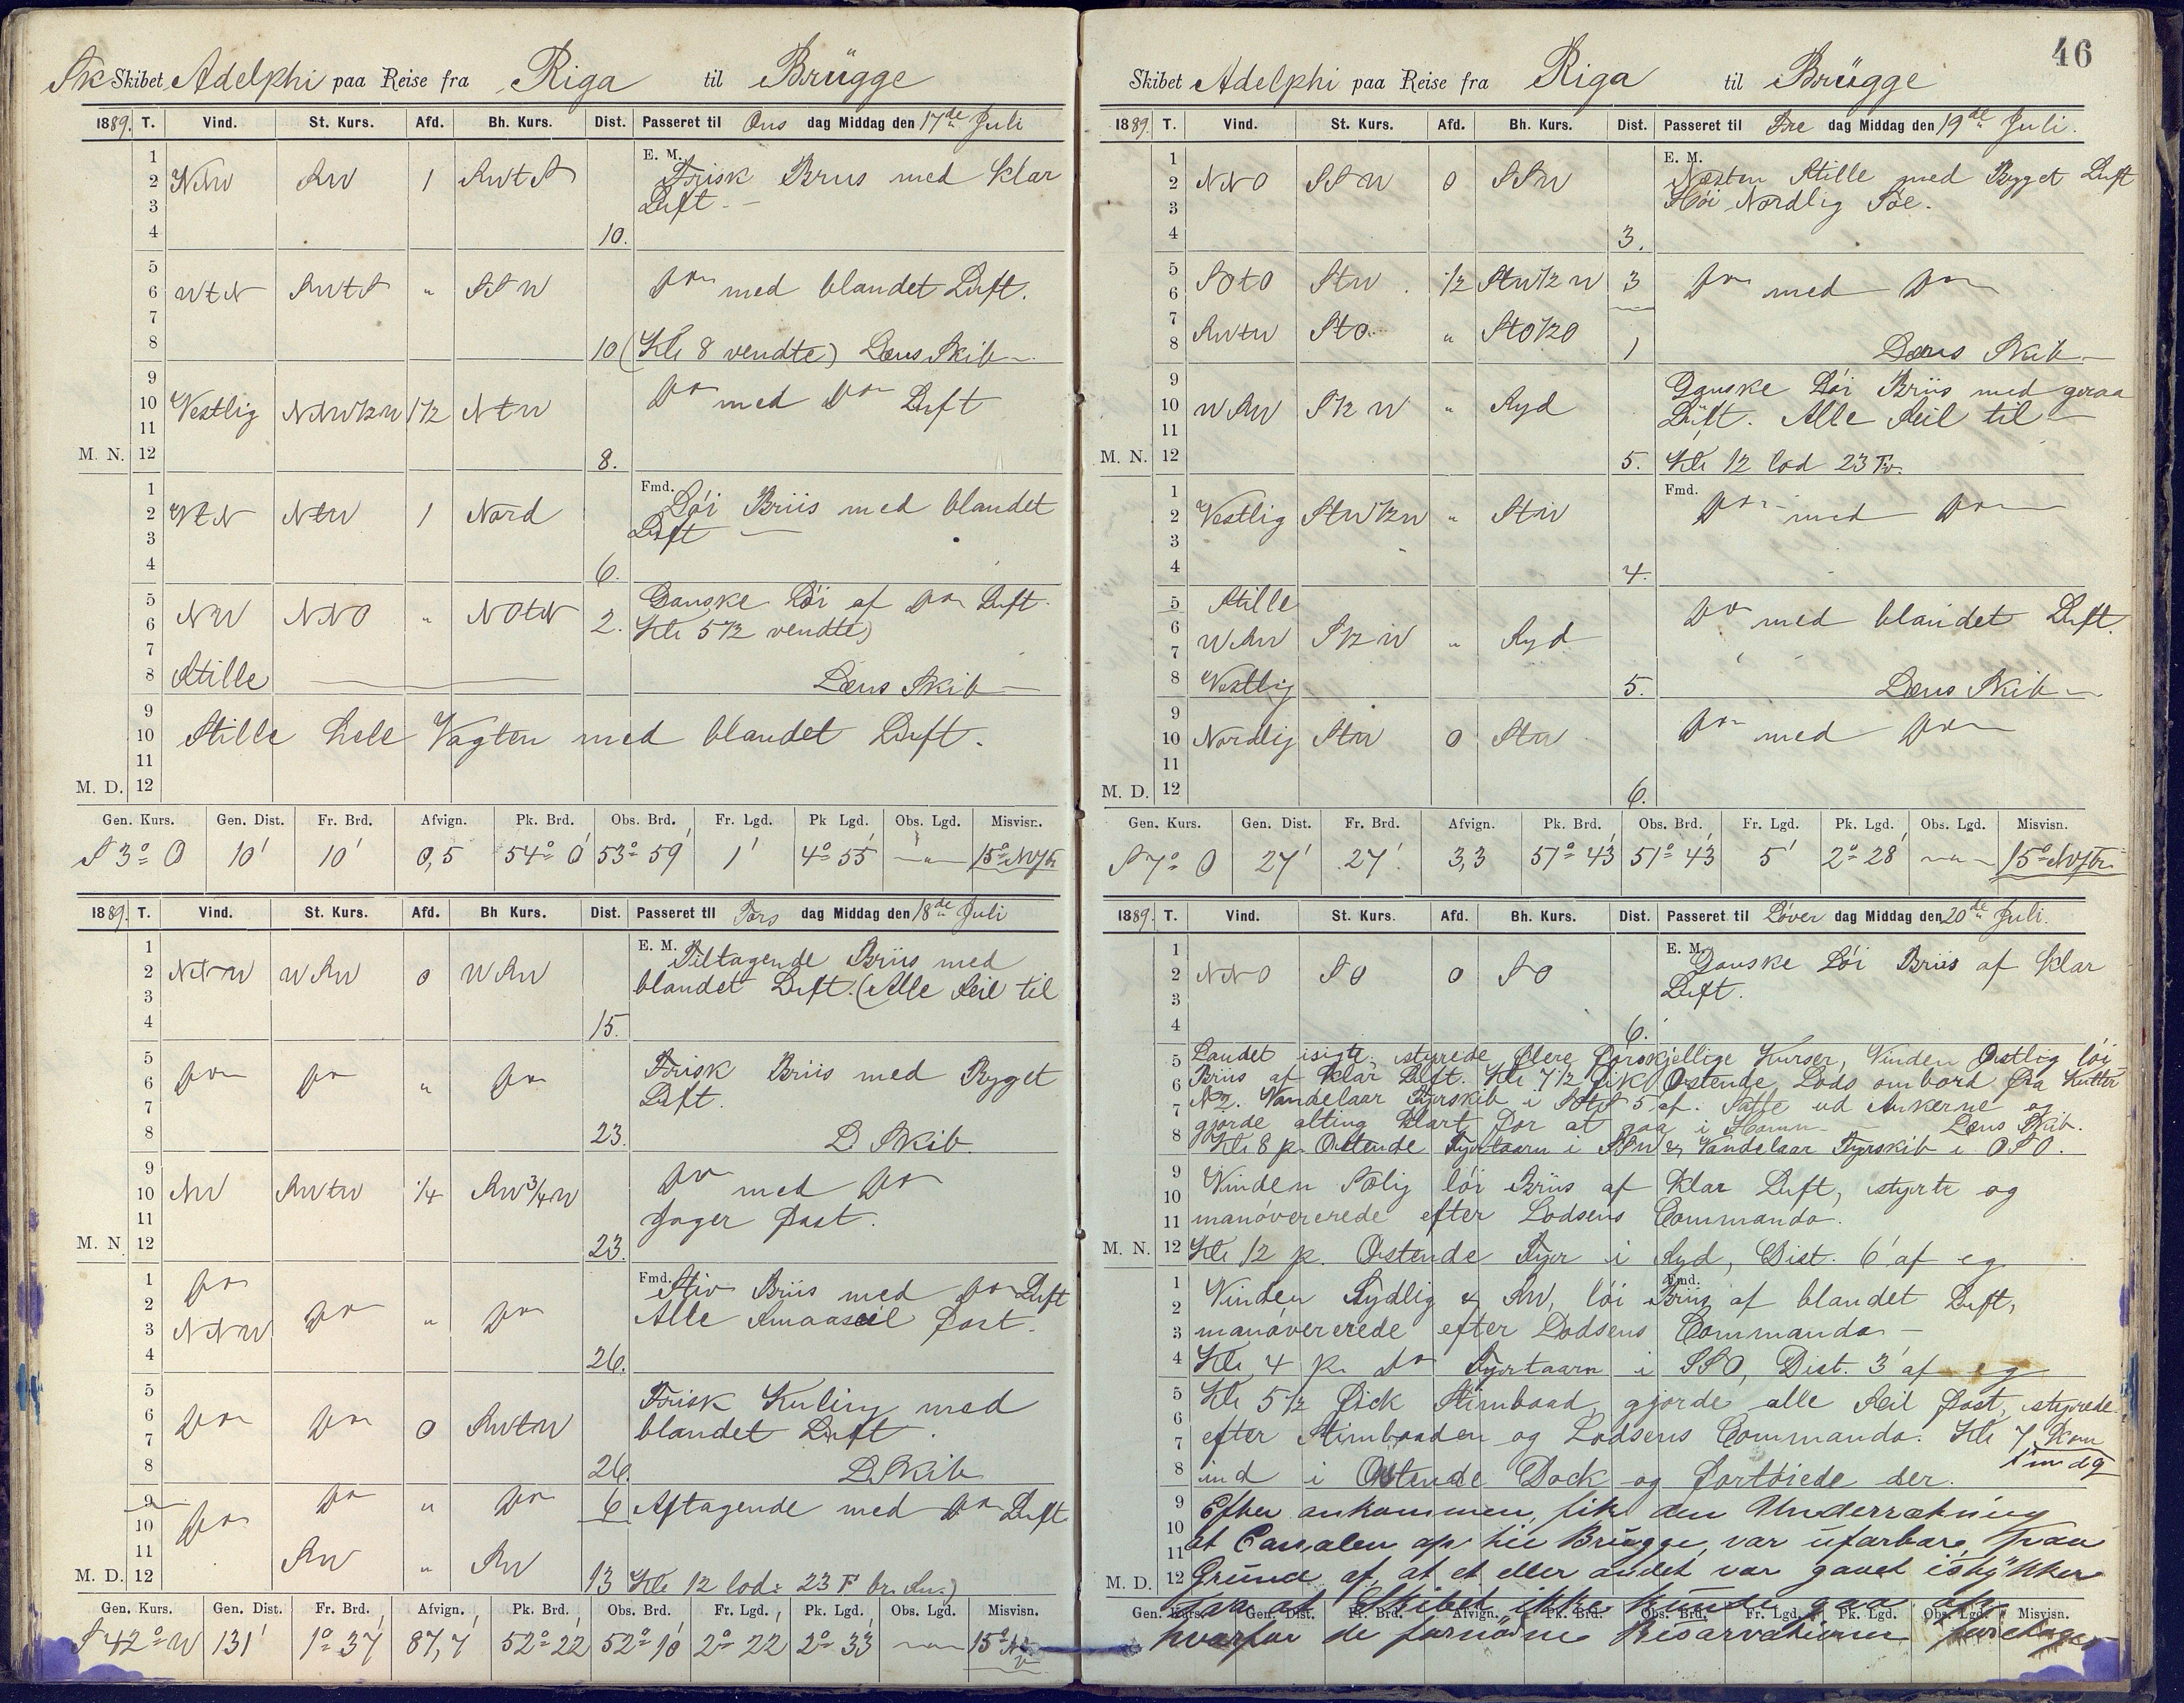 Sk Skibet Adelphi paa Reise fra Riga til Brügge
1889. T. Vind. St. Kurs. Afd. Bh. Kurs. Dist. Passeret til Ons dag Middag den 17de Juli
1 E. M.
2 NNW SW 1 SWtS Frisk Bris med Klar
3 Luft
4 10.
5
6 WtN SWtS " SSW Do med blandet Luft.
7
8 10 (Kl. 8 vendte) Læns Skib
9
10 Vestlig NNW½W 1½ NtW Do med Do Luft
11
M. N. 12 8.
1 Fmd.
2 WtN NtW 1 Nord Løi Briis med blandet
3 Luft
4 6.
5 Ganske Løi af Do Luft.
6 NW NNO " NOtN 2. Kl. 5½ vendte)
7
8 Stille Læns Skib
9
10 Stille hele Vagten med blandet Luft.
11
M. D. 12
Gen. Kurs. Gen. Dist. Fr. Brd. Afvign. Pk. Brd. Obs. Brd. Fr. Lgd. Pk Lgd. Obs. Lgd. Misvisn.
S 3° O 10' 10' 0,5 54° 0' 53° 59' 1' 4° 55' " 15°
1889. T. Vind. St. Kurs. Afd. Bh Kurs. Dist. Passeret til Tors dag Middag den 18de Juli
1 E. M. Tiltagende Briis med
2 NNW WSW 0 WSW blandet Luft. (Alle Seil til
3
4 15.
5
6 Do Do " Do Frisk Briis med Bygget
7 Luft.
8 23. L Skib.
9
10 NW SWtW ¼ SW¾W Do med Do
11 Jager fast.
M. N. 12 23.
1 Do Fmd. Stiv Briis med Do Luft
2 Do " Do Alle Smaaseil fast.
3 NNW
4 26.
5
6 Do Do 0 SWtW Frisk Kuling med
7 blandet Luft.
8 26. L Skib
9 Do " Do 6 Aftagende med Do Luft
10 Do
11 SW " SW
M. D. 12 13 Kl. 12 lod: 23 F
Gen. Kurs. Gen. Dist. Fr. Brd. Afvign. Pk. Brd. Obs. Brd. Fr. Lgd. Pk. Lgd. Obs. Lgd. Misvisn.
S 42° W 131' 1° 37' 87,7 52° 22' 52° 18' 2° 22' 2° 33' " 15°
46
Skibet Adelphi paa Reise fra Riga til Brügge
1889. T. Vind. St. Kurs. Afd. Bh. Kurs. Dist. Passeret til Fre dag Middag den 19de Juli.
1 E. M.
2 NNO SSW 0 SSW Næsten Stille med Bygget Luft
3 Høi Nordlig Søe.
4 3.
5
6 SOtO StW ½ StW½W 3 Do med Do
7
8 SWtW StO " StO½O 1 Læns Skib
9 Ganske Løi Briis med graa
10 WSW S½W " Syd Luft. Alle Seil til
11
M. N. 12 5. Kl. 12 lod 23 Fv.
1 Fmd.
2 Vestlig StW½W " StW Do med Do
3
4 4.
5 Stille
6 WSW S½W " Syd Do med blandet Luft.
7
8 Vestlig 5. Læns Skib
9
10 Nordlig StW 0 StW Do med Do
11
M. D. 12 6.
Gen. Kurs. Gen. Dist. Fr. Brd. Afvign. Pk. Brd. Obs. Brd. Fr. Lgd. Pk. Lgd. Obs. Lgd. Misvisn.
S 7° O 27' 27' 3,3 51° 43' 51° 43' 5' 2° 28' " 15°
1889. T. Vind. St. Kurs. Afd. Bh. Kurs. Dist. Passeret til Løver dag Middag den 20de Juli.
1 E. M.
2 NNO SO 0 SO Ganske Løi Briis af Klar
3 Luft.
4 6.
5 Landet isigte, styrede flere forskjellige Kurser, Vinden Østlig løi
6 Briis af klar Luft. Kl. 7½ fik Ostende Lods ombord fra Kutter
7 N 2. Vandelaar Fyrskib i StS 5' af. Satte ud Ankerne og
gjorde alting klart for at gaa i Havn Læns Skib.
8 Kl. 8 p. Ostende Fyrtaarn i SSW & Vandelaar Fyrskib i OSO.
9 Vinden Sølig løi Briis af Klar Luft, styrte og
10
11 manøvererede efter Lodsens Commando.
M. N. 12 Kl. 12 p. Ostende Fyr i Syd, Dist. 6' af eg
1 Fmd.
2 Vinden Sydlig & SW, løi Briis af blandet Luft,
3 manøvererede efter Lodsens Commando
4 Kl. 4 p. do Fyrtaarn i SSO, Dist. 3' af eg
5 Kl. 5½ fick Stimbaad, gjorde alle Seil fast, styrede
6
7 efter Stimbaaden og Lodsens Commando. Kl. 7 kom
8 ind i Ostende Dock og fortøiede der.
9 Efter ankommen, fik den Underretning
10
11 at Canalen op til Brügge, var ufarbare, paa
M. D. 12 Grund af, at et eller andet var gaaet istykker
saa at Skibet ikke kunde gaa op,
Gen. Kurs. Gen. Dist. Fr. Brd. Afvign. Pk. Brd. Obs. Brd. Fr. Lgd. Pk. Lgd. Obs. Lgd. Misvisn.
hvorfor de fornødne